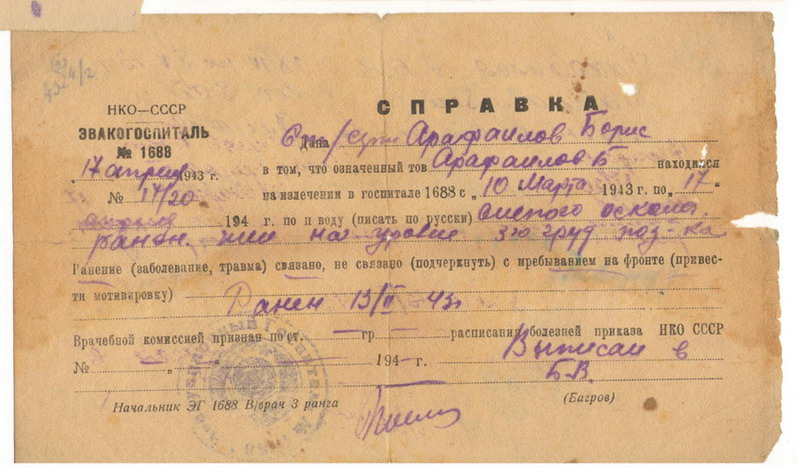 НКО—СССР
ЭВАКОГОСПИТАЛЬ
№ 1688
"17 апреля 1943 г.
№ 17/20
СПРАВКА
Дана Ст/серж Арафаилов Борис
в том, что означенный тов Арафаилов Б находился
на излечении в госпитале 1688 с „10 Марта 1943 г. по „17"
апреля 194 г. по п воду (писать по русски) слепого оскол.
ранен. на уровне 3го груд поз-ка
Ранение (заболевание, травма) связано, не связано (подчеркнуть) с пребыванием на фронте (привес-
ти мотивировку)
Ранен 13/II 43г
Врачебной комиссией признан по ст. — гр — расписания болезней приказа НКО СССР
№ — " — 194- г. Выписан в
Б.В.
Начальник ЭГ 1688 В/врач 3 ранга (Багров)